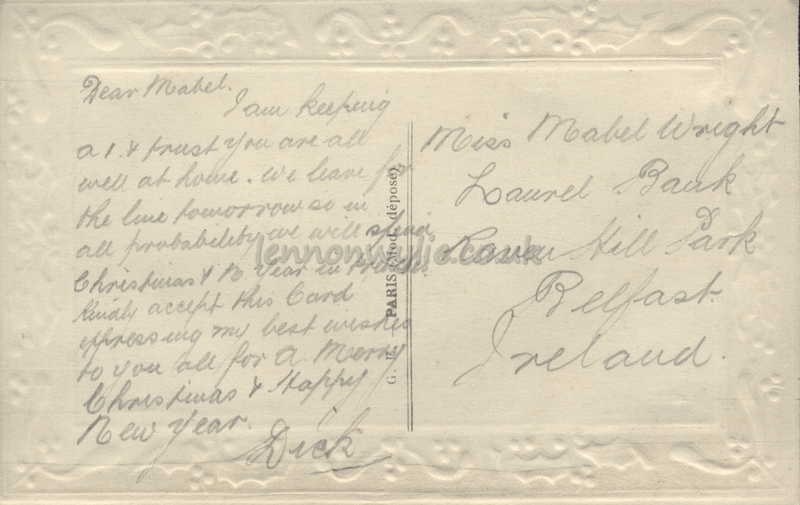 Dear Mabel.
I am keeping
a 1. & trust you are all
well at home. We leave for
the line tomorrow so in
all probability we will spend
Christmas & N Year in
Kindly accept this Card
expressing my best wishes
to you all for a Merry
Christmas & Happy
New Year.
Dick
G. PARIS (Mod. déposé)
Miss Mabel Wright
Laurel Bank
Raven Hill Park
Belfast.
Ireland.
lennonwylie.co.uk